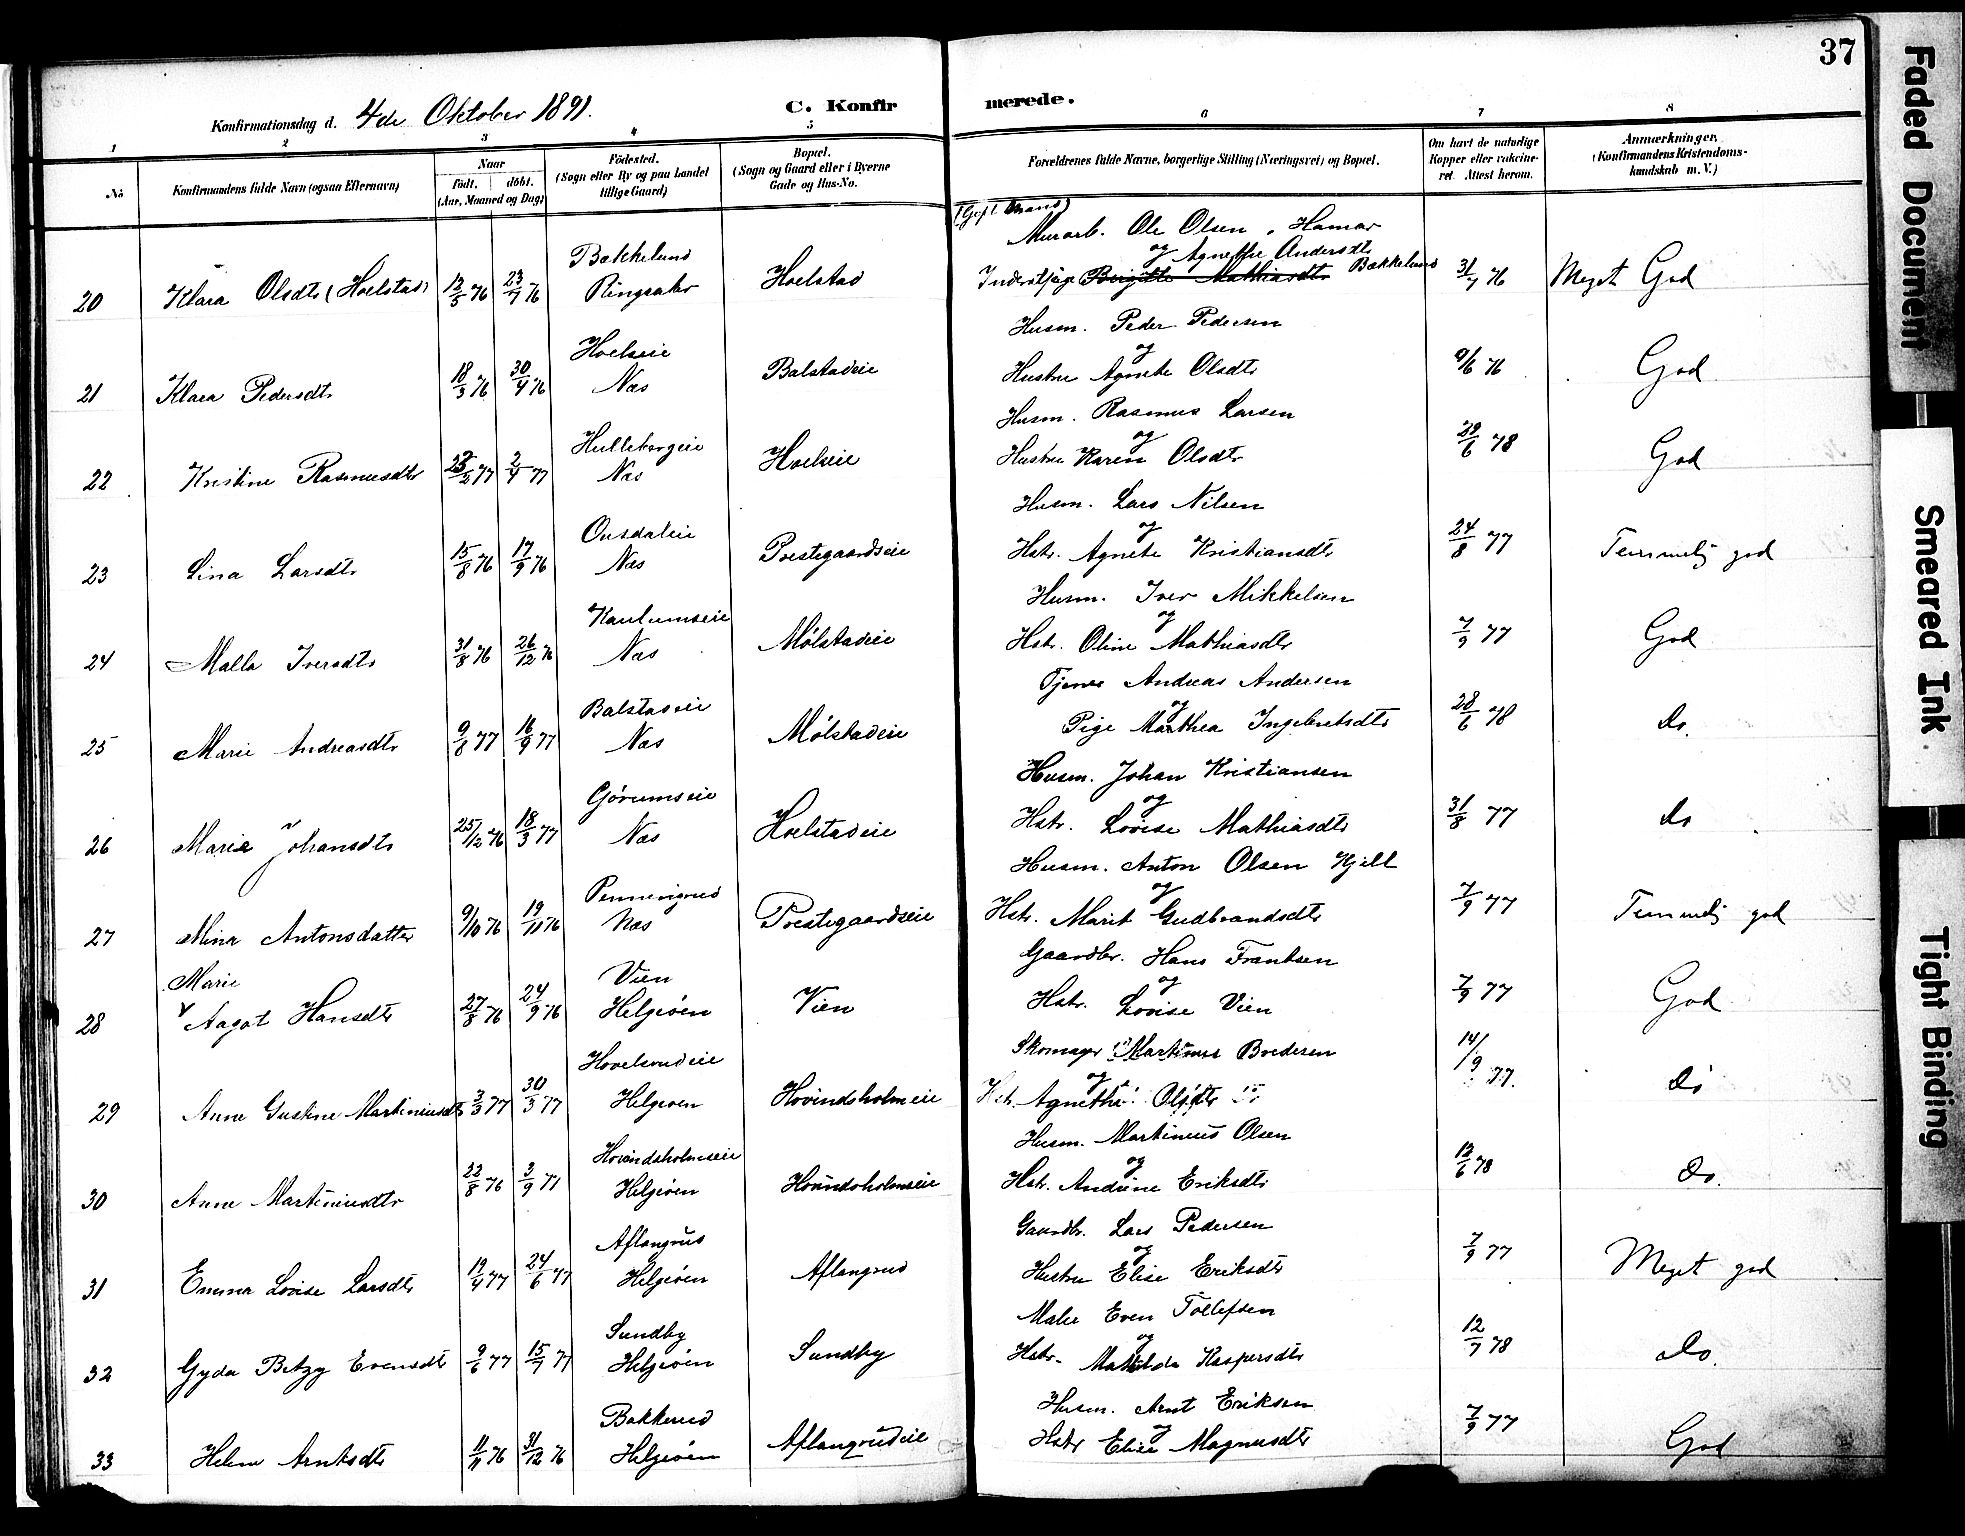 37
Konfirmationsdag d. 4de Oktober 1891.
C. Konfirmerede.
1 2 3 4 5 6 7 8
No
Konfirmandens fulde Navn (ogsaa Efternavn)
Naar
født. døbt.
(Aar, Maaned og Dag)
Fødested.
(Sogn eller By og paa Landet
tillige Gaard)
Bopæl.
(Sogn og Gaard eller i Byerne
Gade og Hus-No.
Forældrenes fulde Navne, borgerlige Stilling (Næringsvei) og Bopæl.
Om havt de naturlige
Kopper eller vakcine-
ret. Attest herom.
Anmærkninger,
(Konfirmandens Kristendoms-
kundskab m. V.)
(Gift Mand)
Murarb. Ole Olsen, Hamar
Bækkelund og Agnethe Andersdtr
20 Klara Olsdtr (Hoelstad) 12/5 76 23/7 76 Ringsaker Hoelstad Inderstpige Birgitte Mathiasdtr Bækkelund 31/7 76 Meget God
Husm. Peder Pedersen
Hoelseie og
21 Klara Pedersdtr 18/3 76 30/4 76 Næs Balstadeie Hustru Agnete Olsdtr 9/6 76 God
Husm. Rasmus Larsen
Hullebergeie og
22 Kristine Rasmusdtr 23/2 77 2/4 77 Næs Hoelseie Hustru Karen Olsdtr 29/6 78 God
Husm. Lars Nilsen
Ousdaleie og
23 Lina Larsdtr 15/8 76 17/9 76 Næs Prestegaardseie Hstr. Agnete Kristiansdtr 24/8 77 Temmelig god
Husm. Iver Mikkelsen
Kaulumseie og
24 Malla Iversdtr 31/8 76 26/12 76 Næs Mølstadeie Hstr. Oline Mathiasdtr 7/9 77 God
Tjener Andreas Andersen
Balstadeie og
25 Marie Andreasdtr 9/8 77 16/9 77 Næs Mølstadeie Pige Marthea Ingebretsdtr 28/6 78 do.
Husm. Johan Kristiansen
Gjørumseie og
26 Marie Johansdtr 25/12 76 18/3 77 Næs Hoelstadeie Hstr. Lovise Mathiasdtr 31/8 77 do
Husm. Anton Olsen Kjell
Pennerigrud og
27 Mina Antonsdatter 9/10 76 19/11 76 Næs Prestegaardseie Hstr. Marit Gudbrandsdtr 7/9 77 Temmelig god
Gaardbr. Hans Frantsen
Marie Vien og
28 Aagot Hansdtr 27/8 76 24/9 76 Helgøen Vien Hstr. Lovise Vien 7/9 77 God
Skomager Martinus Bredesen
Hovelsrudeie og
29 Anne Gustine Martiniusdtr 3/3 77 30/3 77 Helgøen Hovindsholmeie Hstr. Agnethe Olsdtr 14/9 77. do
Husm. Martinius Olsen
Hovindsholmseie og
30 Anne Martiniusdtr 22/8 76 3/9 77 Helgøen Hovindsholmseie Hstr. Andrine Eriksdtr 12/6 78 do.
Gaardbr. Lars Pedersen
Aflangrud og
31 Emma Lovise Larsdtr 19/4 77 24/6 77 Helgøen Aflangrud Hustru Elise Eriksdtr 7/9 77 Meget god
Maler Even Tollefsen
Sundby og
32 Gyda Betzy Evensdtr 9/6 77 15/7 77 Helgøen Sundby Hstr. Matilde Kaspersdtr 12/7 78 do.
Husm. Arnt Eriksen
Bakkerud og
33 Helene Arntsdtr 11/11 76 31/12 76 Helgøen Aflangrudeie Hstr Elise Magnusdtr 7/9 77 God
Faded Document
Smeared Ink
Tight Binding